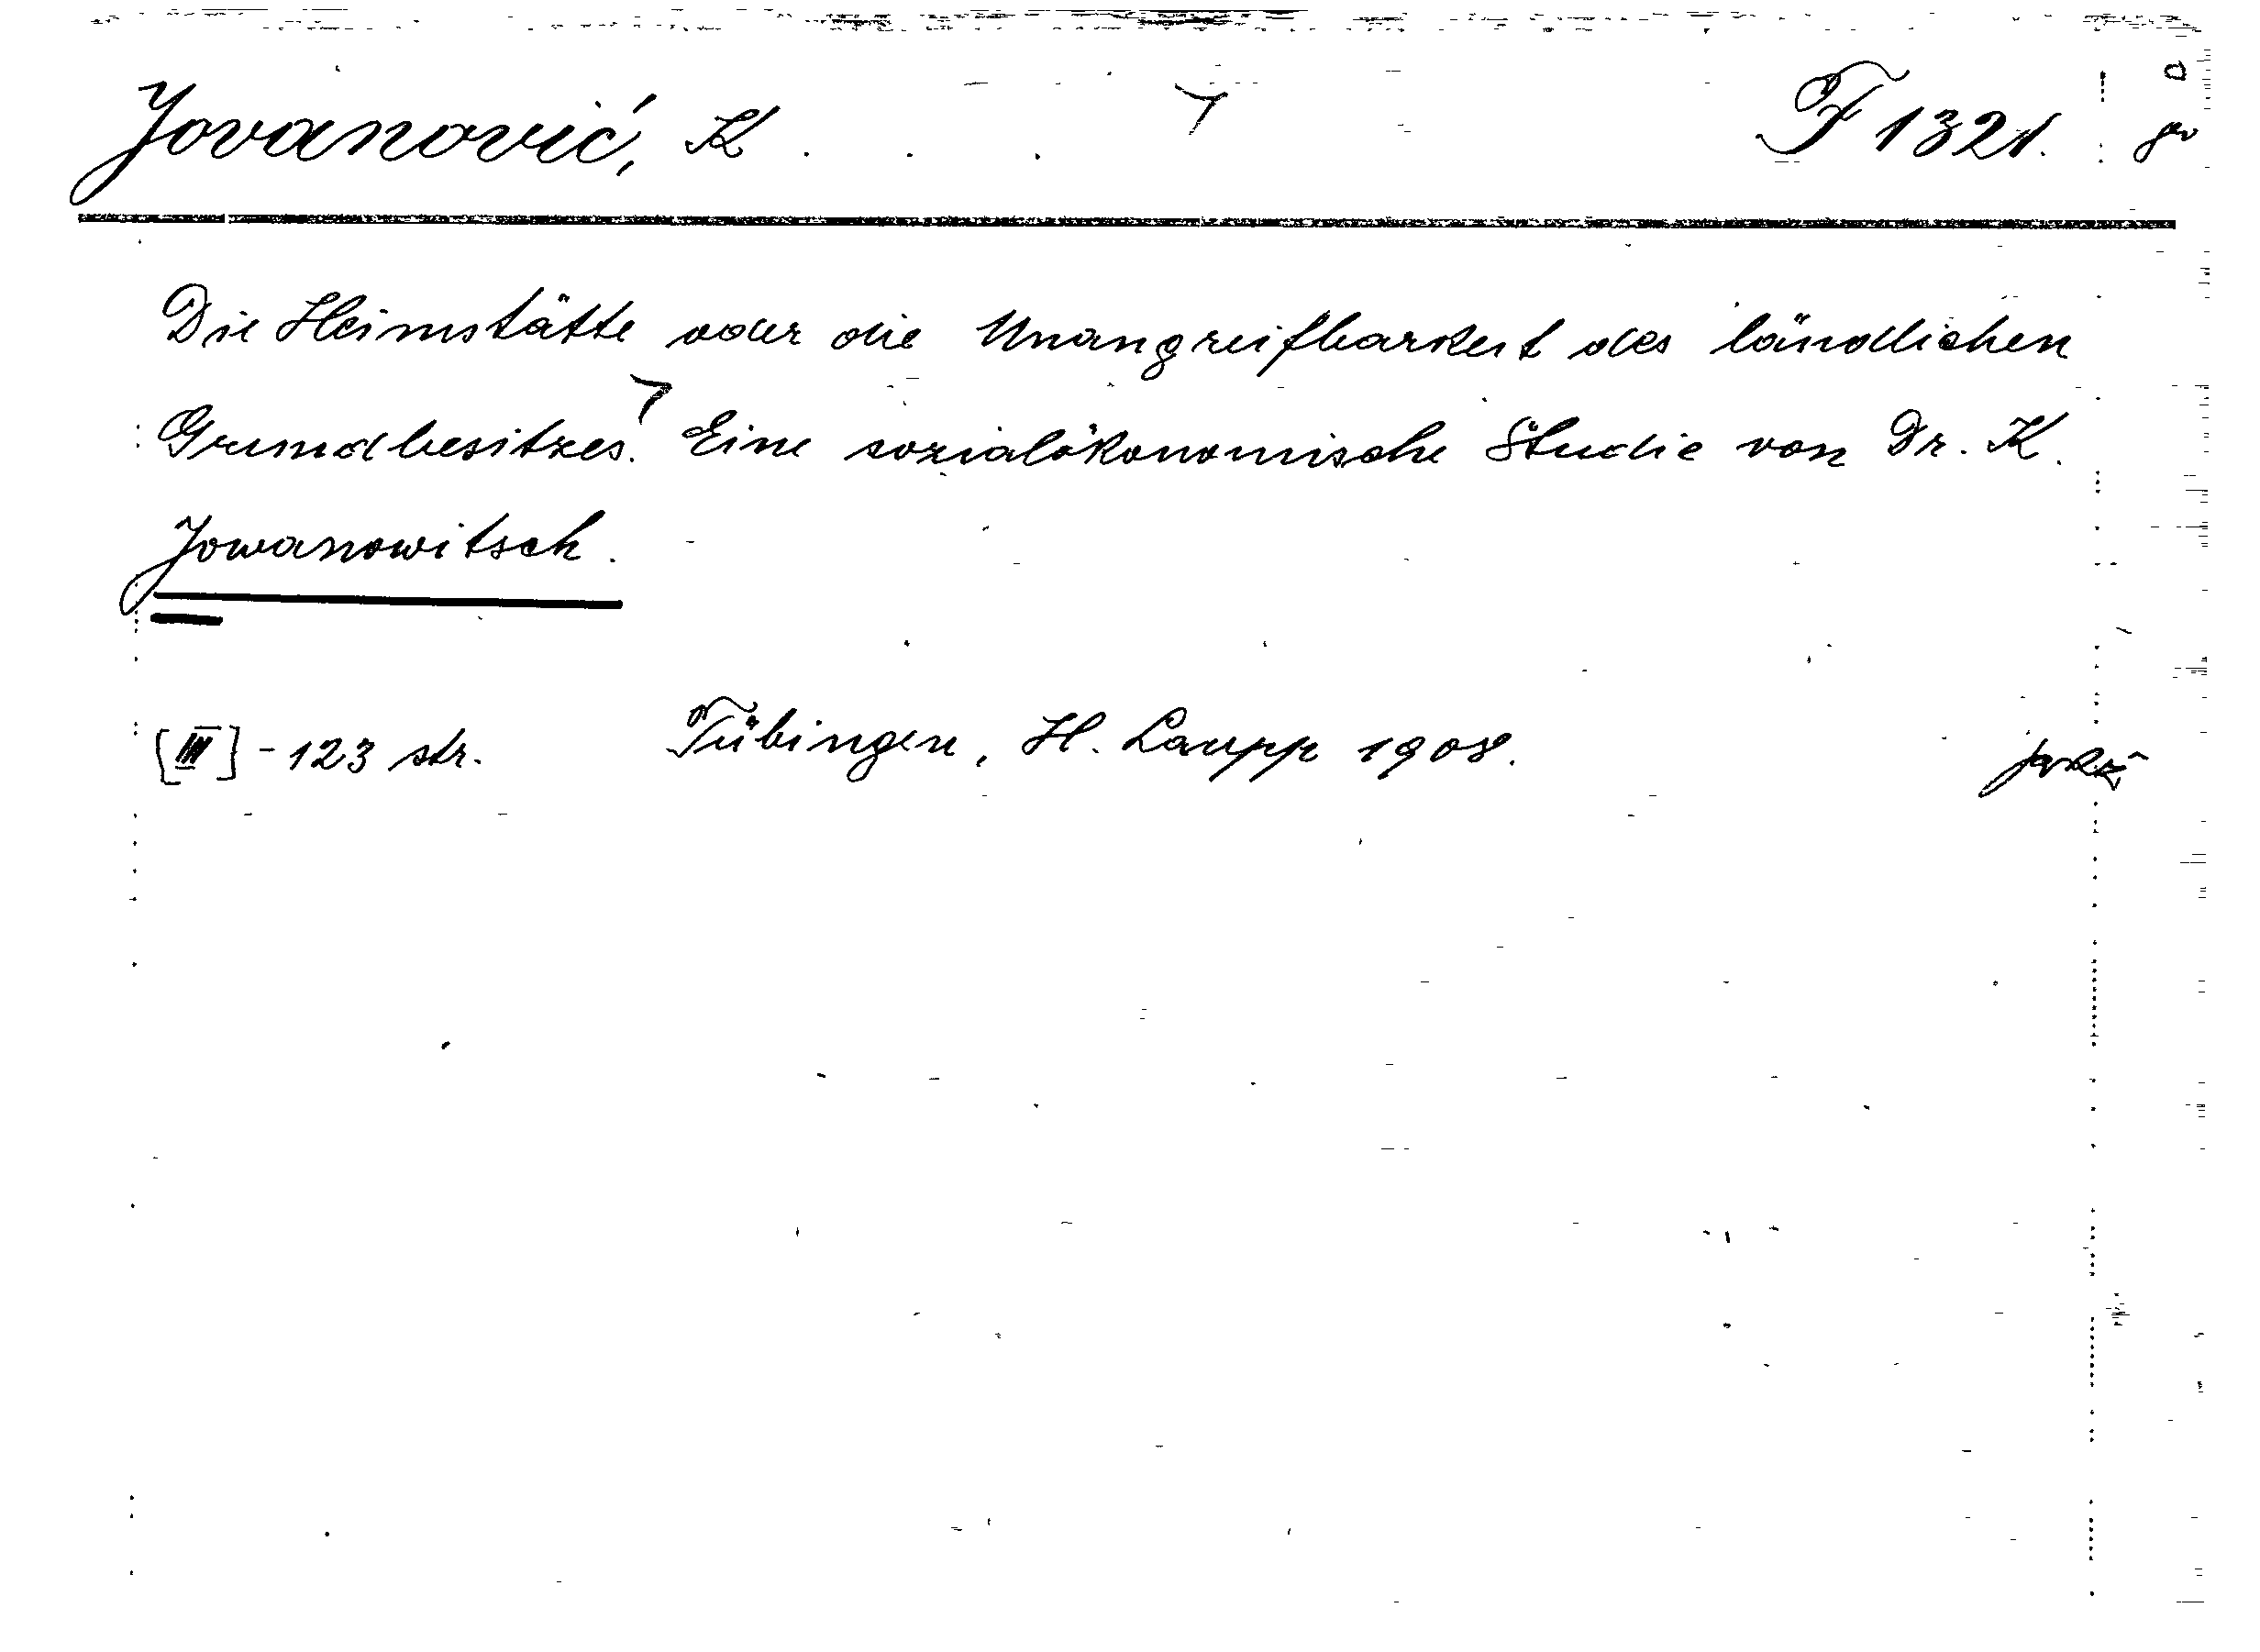 Jovanović, K . . . F 1321.
Die Heimstätte oder die Unangreifbarkeit des ländlichen
Grundbesitzes. Eine sozialökonomische Studie von Dr. K.
Jowanowitsch.
[III] - 123 str. Tübingen, H. Laupp 1908.